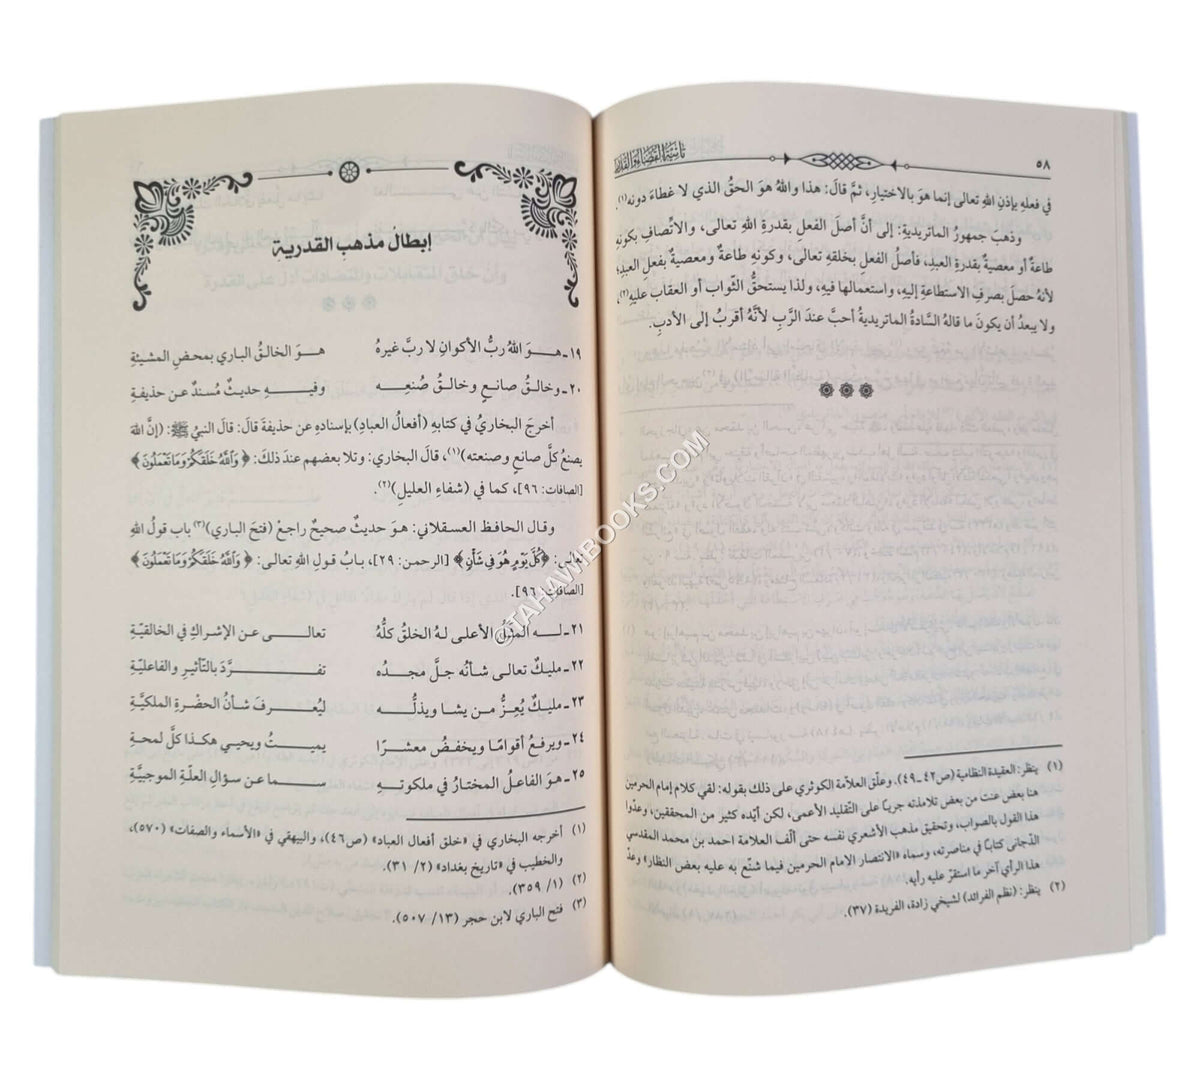 ٥٨
تائية القضاء والقدر
في فعلهِ بإذنِ اللهِ تعالى إنما هوَ بالاختيارِ، ثمَّ قالَ: هذا واللهُ هوَ الحقُّ الذي لا غطاءَ دونه(١).
وذهبَ جمهورُ الماتريديةِ: إلى أنَّ أصلَ الفعلِ بقدرةِ اللهِ تعالى، والاتِّصافِ بكونهِ
طاعةً أو معصيةً بقدرةِ العبدِ، فأصلُ الفعلِ بخلقهِ تعالى، وكونَهِ طاعةً ومعصيةً بفعلِ العبدِ؛
لأنهُ حصلَ بصرفِ الاستطاعةِ إليهِ، واستعمالها فيهِ، ولذا يستحقُّ الثّوابَ أو العقابَ عليهِ(٢)،
ولا يبعدُ أن يكونَ ما قالهُ السَّادةُ الماتريديةُ أحبَّ عندَ الرَّبِ لأنَّهُ أقربُ إلى الأدبِ.
(١) ينظر: العقيدة النظامية (ص٤٢-٤٩). وعلّق العلاّمة الكوثري على ذلك بقوله: لقي كلام إمام الحرمين
هنا بعض عنت من بعض تلامذته جرياً على التقليد الأعمى، لكن أيّده كثير من المحققين، وعدّوا
هذا القول بالصواب، وتحقيق مذهب الأشعري نفسه حتى ألّف العلامة احمد بن محمد المقدسي
الدّجاني كتاباً في مناصرته، وسماه «الانتصار لامام الحرمين فيما شنّع به عليه بعض النظار» وعدّ
هذا الرأي آخر ما استقرّ عليه رأيه.
(٢) ينظر: (نظم الفرائد) لشيخي زادة، الفريدة (٣٧).
إبطالُ مذهبِ القدريةِ
١٩ـ هـوَ اللهُ ربُّ الأكوانِ لا ربَّ غيرهُ هـوَ الخالقُ الباري بمحضِ المشيئةِ
٢٠ـ وخالـقُ صانـعٍ وخالـقُ صُنعِـه وفيـهِ حديثٌ مُسندٌ عن حذيفةِ
أخرجَ البخاريُ في كتابهِ (أفعالُ العبادِ) بإسنادهِ عن حذيفةَ قالَ: قالَ النبيُ ﷺ: (إنَّ اللهَ
يصنعُ كلَّ صانعٍ وصنعته)(١)، قالَ البخاري: وتلا بعضهم عندَ ذلكَ: ﴿وَاللَّهُ خَلَقَكُمْ وَمَا تَعْمَلُونَ﴾
[الصافات: ٩٦]، كما في (شفاءِ العليلِ)(٢).
وقال الحافظ العسقلاني: هـو حديثٌ صحيحٌ راجعْ (فتحَ الباري)(٣) باب قولُ اللهِ
تعالى: ﴿كُلَّ يَوْمٍ هُوَ فِي شَأْنٍ﴾ [الرحمن: ٢٩]، بـابُ قـولِ اللهِ تعالى: ﴿وَاللَّهُ خَلَقَكُمْ وَمَا تَعْمَلُونَ﴾
[الصافات: ٩٦].
٢١ـ لـه المثلُ الأعلى لـهُ الخلقُ كلُّهُ تعالـى عـن الإشراكِ في الخالقيّةِ
٢٢ـ مليكٌ تعالى شـأنُه جلَّ مجـدُه تفـرَّدَ بالتّأثيرِ والفاعليّةِ
٢٣ـ مليكٌ يُعِـزُّ مـن يشـا ويذلُّـه ليُعـرفَ شـأنُ الحضْرةِ الملكيَّةِ
٢٤ـ ويرفـعُ أقوامًـا ويخفـضُ معشـرًا يميـتُ ويحيـي هكـذا كلَّ لمحةِ
٢٥ـ هـوَ الفاعـلُ المختـارُ في ملكوتـهِ سـما عن سؤالِ العلّـةِ الموجبيَّةِ
(١) أخرجه البخاري في «خلق أفعال العباد» (ص٤٦)، والبيهقي في «الأسماء والصفات» (٥٧٠)،
والخطيب في «تاريخ بغداد» (٢/ ٣١).
(٢) (١/ ٣٥٩).
(٣) فتح الباري لابن حجر (١٣/ ٥٠٧).
©TAHAWIBOOKS.COM